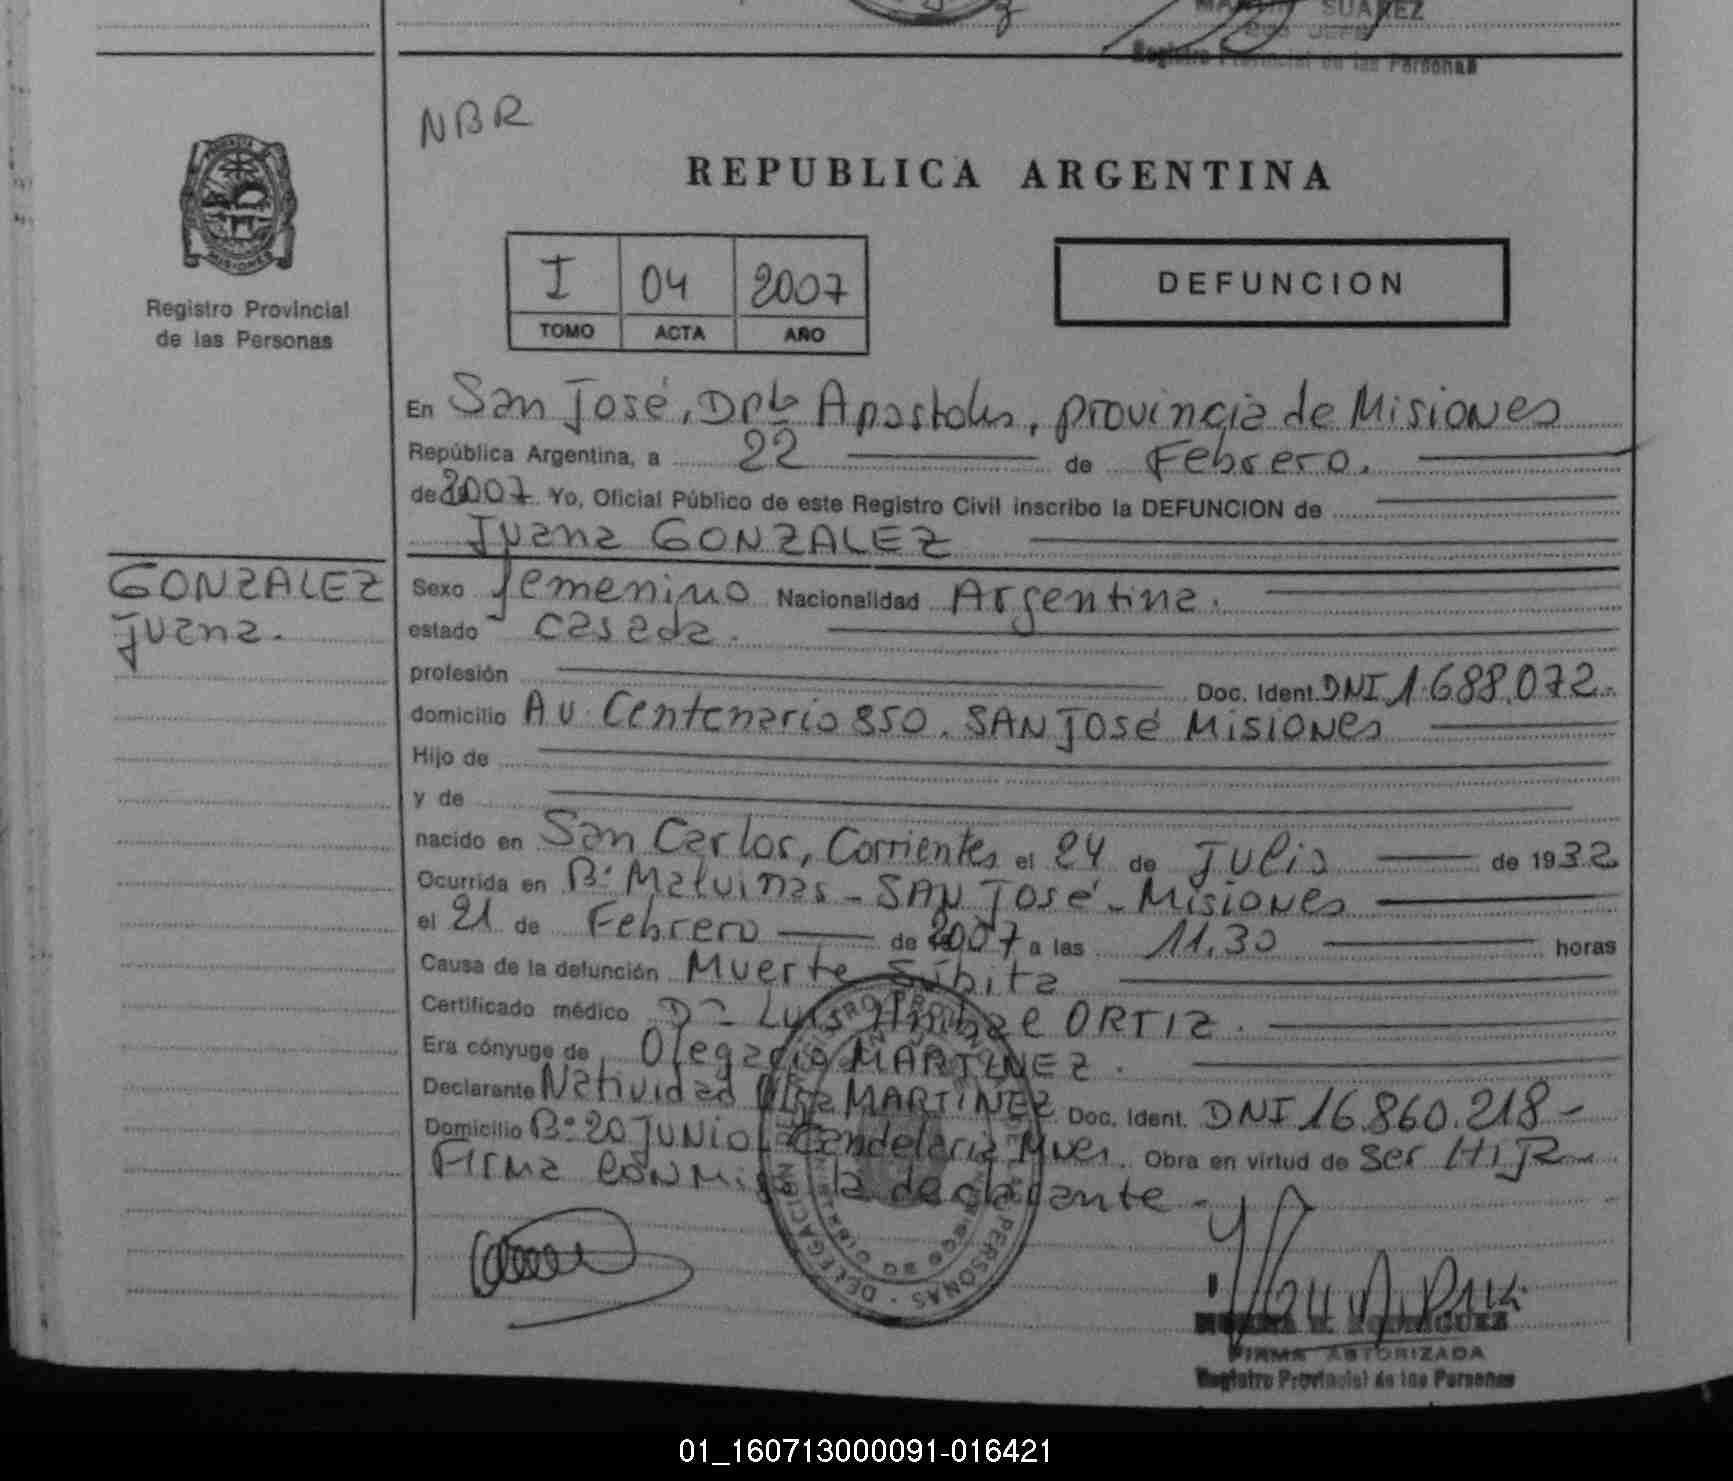 SUAREZ
Registro Provincial de las Personas
NBR
REPUBLICA ARGENTINA
PROVINCIA DE MISIONES
Registro Provincial
de las Personas
I 04 2007
TOMO ACTA AÑO
DEFUNCION
En San José, Dpto Apostoles, provincia de Misiones
República Argentina, a 22 de Febrero.
de 2007 Yo, Oficial Público de este Registro Civil inscribo la DEFUNCION de
Juana GONZALEZ
GONZALEZ
Juana.
Sexo femenino Nacionalidad Argentina.
estado casada.
profesión Doc. Ident. DNI 1.688.072.
domicilio Av. Centenario 850. SAN JOSé MISIONES
Hijo de
y de
nacido en San Carlos, Corrientes el 24 de Julio de 1932
Ocurrida en Bº Malvinas - SAN JOSé - Misiones
el 21 de Febrero de 2007 a las 11,30 horas
Causa de la defunción Muerte Súbita
Certificado médico Dr. Luis ORTIZ.
Era cónyuge de Olegario MARTINEZ.
Declarante Natividad MARTINEZ Doc. Ident. DNI 16.860.218-
Domicilio Bº 20 JUNIO, Candelaria Mnes. Obra en virtud de ser HIJA
Firma conmigo la declarante.
FIRMA AUTORIZADA
Registro Provincial de las Personas
01_160713000091-016421